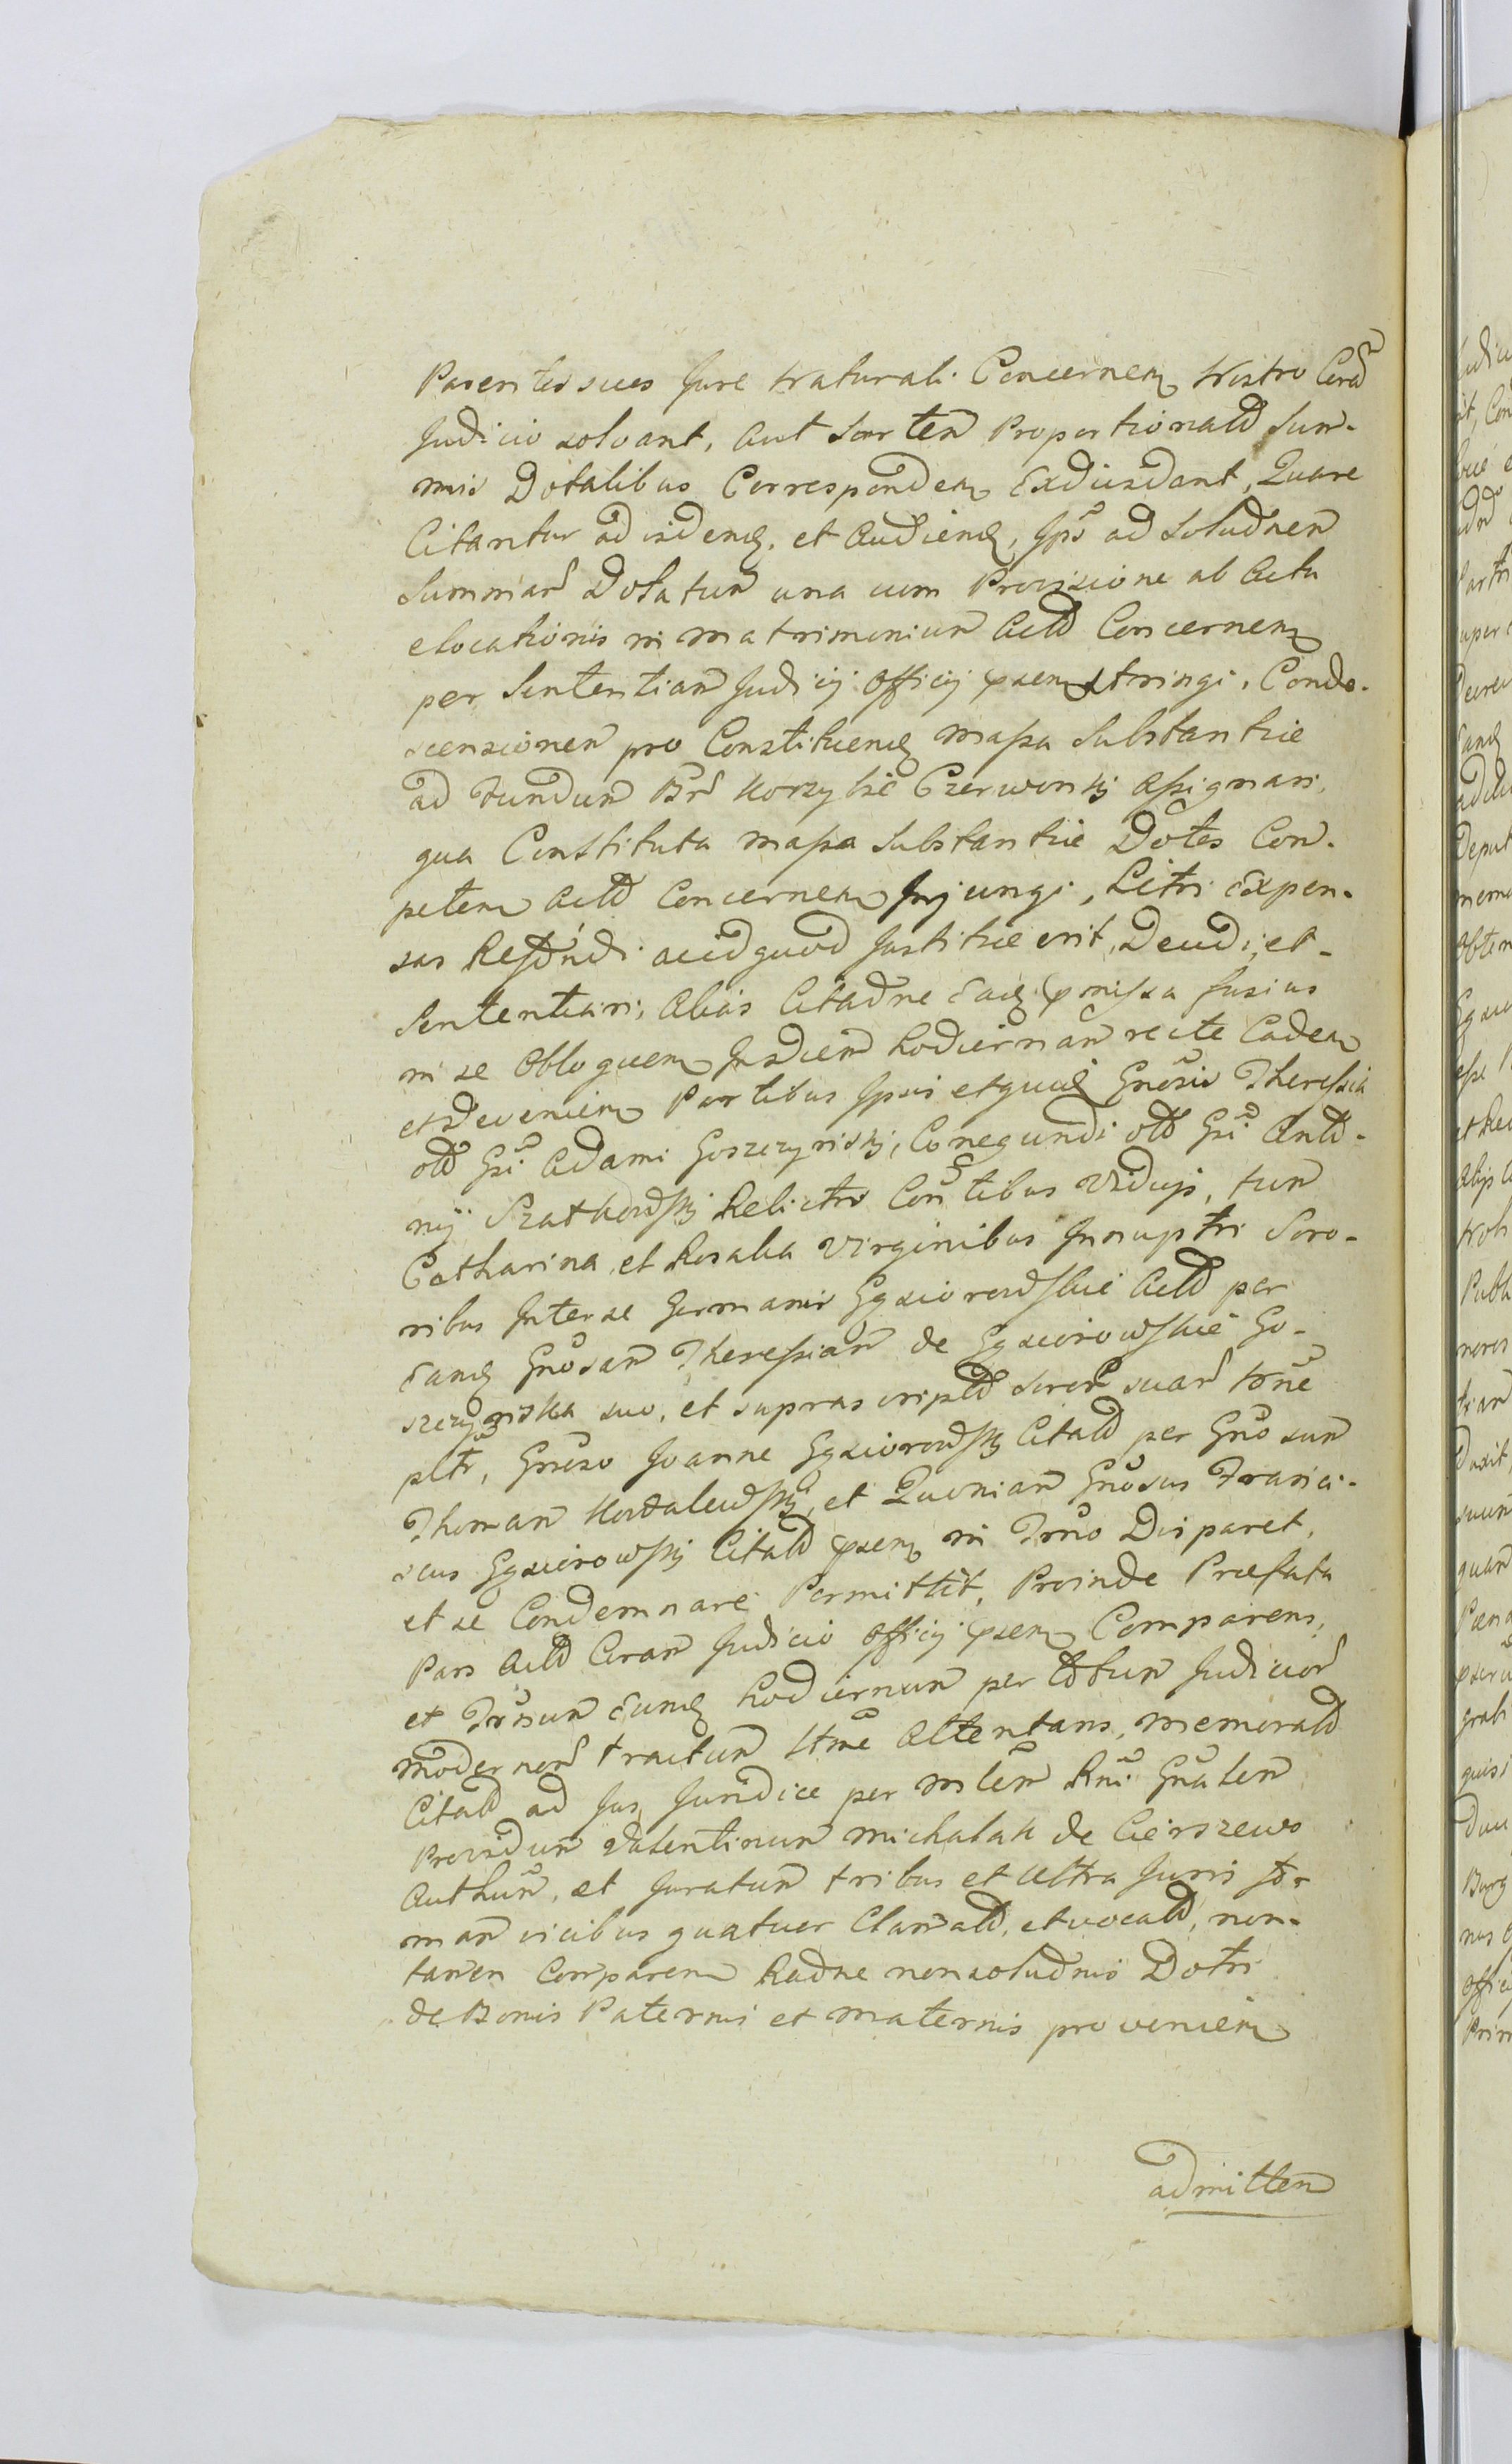 Parentes suos Jure Naturali Concernen Nostro Corā
Judicio solvant, aut Sortem Proportionatā Sum-
mis Dotalibus Corresponden Exdividant, Quare
Citantur ad viden. et Audien, Ipos ad Solutnem
Summar Dotalium una cum Provisione ab Actu
elocationis in matrimonium Act Concernen
per Sententiam Judicij Officij psen stringi, Conde-
scensionem pro Constituen massa Substantiæ
ad Fundum Bnr Korzybie Czerwonki assignari,
qua Constituta massa Substantiæ Dotes Com-
peten Act Concernen Injungi, Litis Expen-
sas Refundi ac id quod Justitiæ erit, Decidi, et
Sententiari, Alias Citatne Ead pmissa fusius
in se Obloquen Indiem hodiernam recte Caden
et Devenien Partibus Ipsis utputa Gnosis Theressia
olt Gsi Adami Goszczynskj, Conegundi olt Gsi Anto-
nij Szatkowskj Relictis Contibus Viduis, tum
Catharina, et Rosalia Virginibus Innuptis Soro-
ribus Inter se Germanis Gąsiorowskie Act per
Eand Gnosam Theressiam de Gąsiorowskie Go-
szczynska suo, et suprascript Soror suar Nne
pltr, Gnoso Joanne Gąsiorowskj Citat per Gnosum
Thomam Kowalewskj, et Quoniam Gnosus Franci-
scus Gąsiorowskj Citat psen in Trno Disparet,
et se Condemnare Permittit, Proinde Præfata
Pars Act Coram Judicio Officij psen Comparens,
et Trnum Eund hodiernum per totum Judicior
modernor tractum Ltme Attentans, memorat
Citat ad Jus Juridice per mlem Rni Gnalem
Providum Valentinum Michalak de Cierszewo
Authum, et Juratum tribus et Ultra Juris for-
mam vicibus quatuor Clamat, et vocat, non-
tamen Comparen Ratne nonsolutnis Dotis
de Bonis Paternis et maternis provenien
admitten